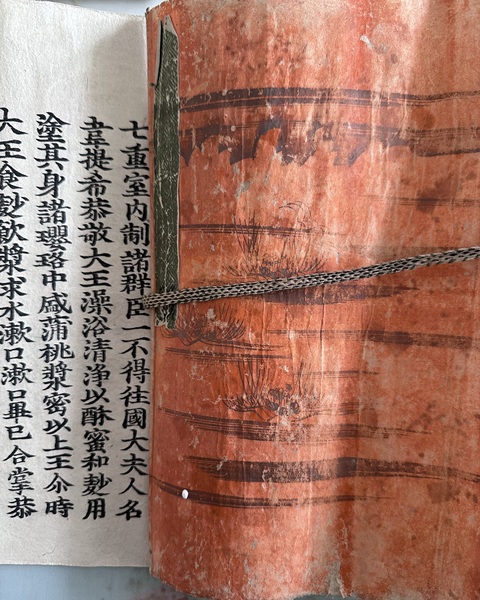 七重室内制諸群臣一不得往國大夫人名
韋提希恭敬大王澡浴清淨以酥蜜和麨用
塗其身諸瓔珞中盛蒲桃漿密以上王尒時
大王食麨飲漿求水漱口漱口畢已合掌恭